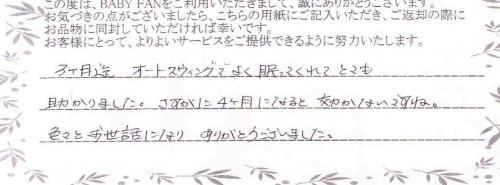 この度は、BABY FANをご利用いただきまして、誠にありがとうございます。
お気づきの点がございましたら、こちらの用紙にご記入いただき、ご返却の際に
お品物に同封していただければ幸いです。
お客様にとって、よりよいサービスをご提供できるように努力いたします。
3ヶ月迄 オートスウィングでよく眠ってくれてとても
助かりました。さすがに4ヶ月になると効かないですね。
色々とお世話になり ありがとうございました。